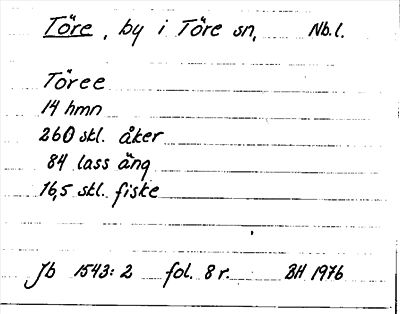 Töre, by i Töre sn, Nb.l.
Töree
14 hmn
260 skl. åker
84 lass äng
16,5 skl. fiske
Jb 1543:2 fol. 8 r. BH 1976